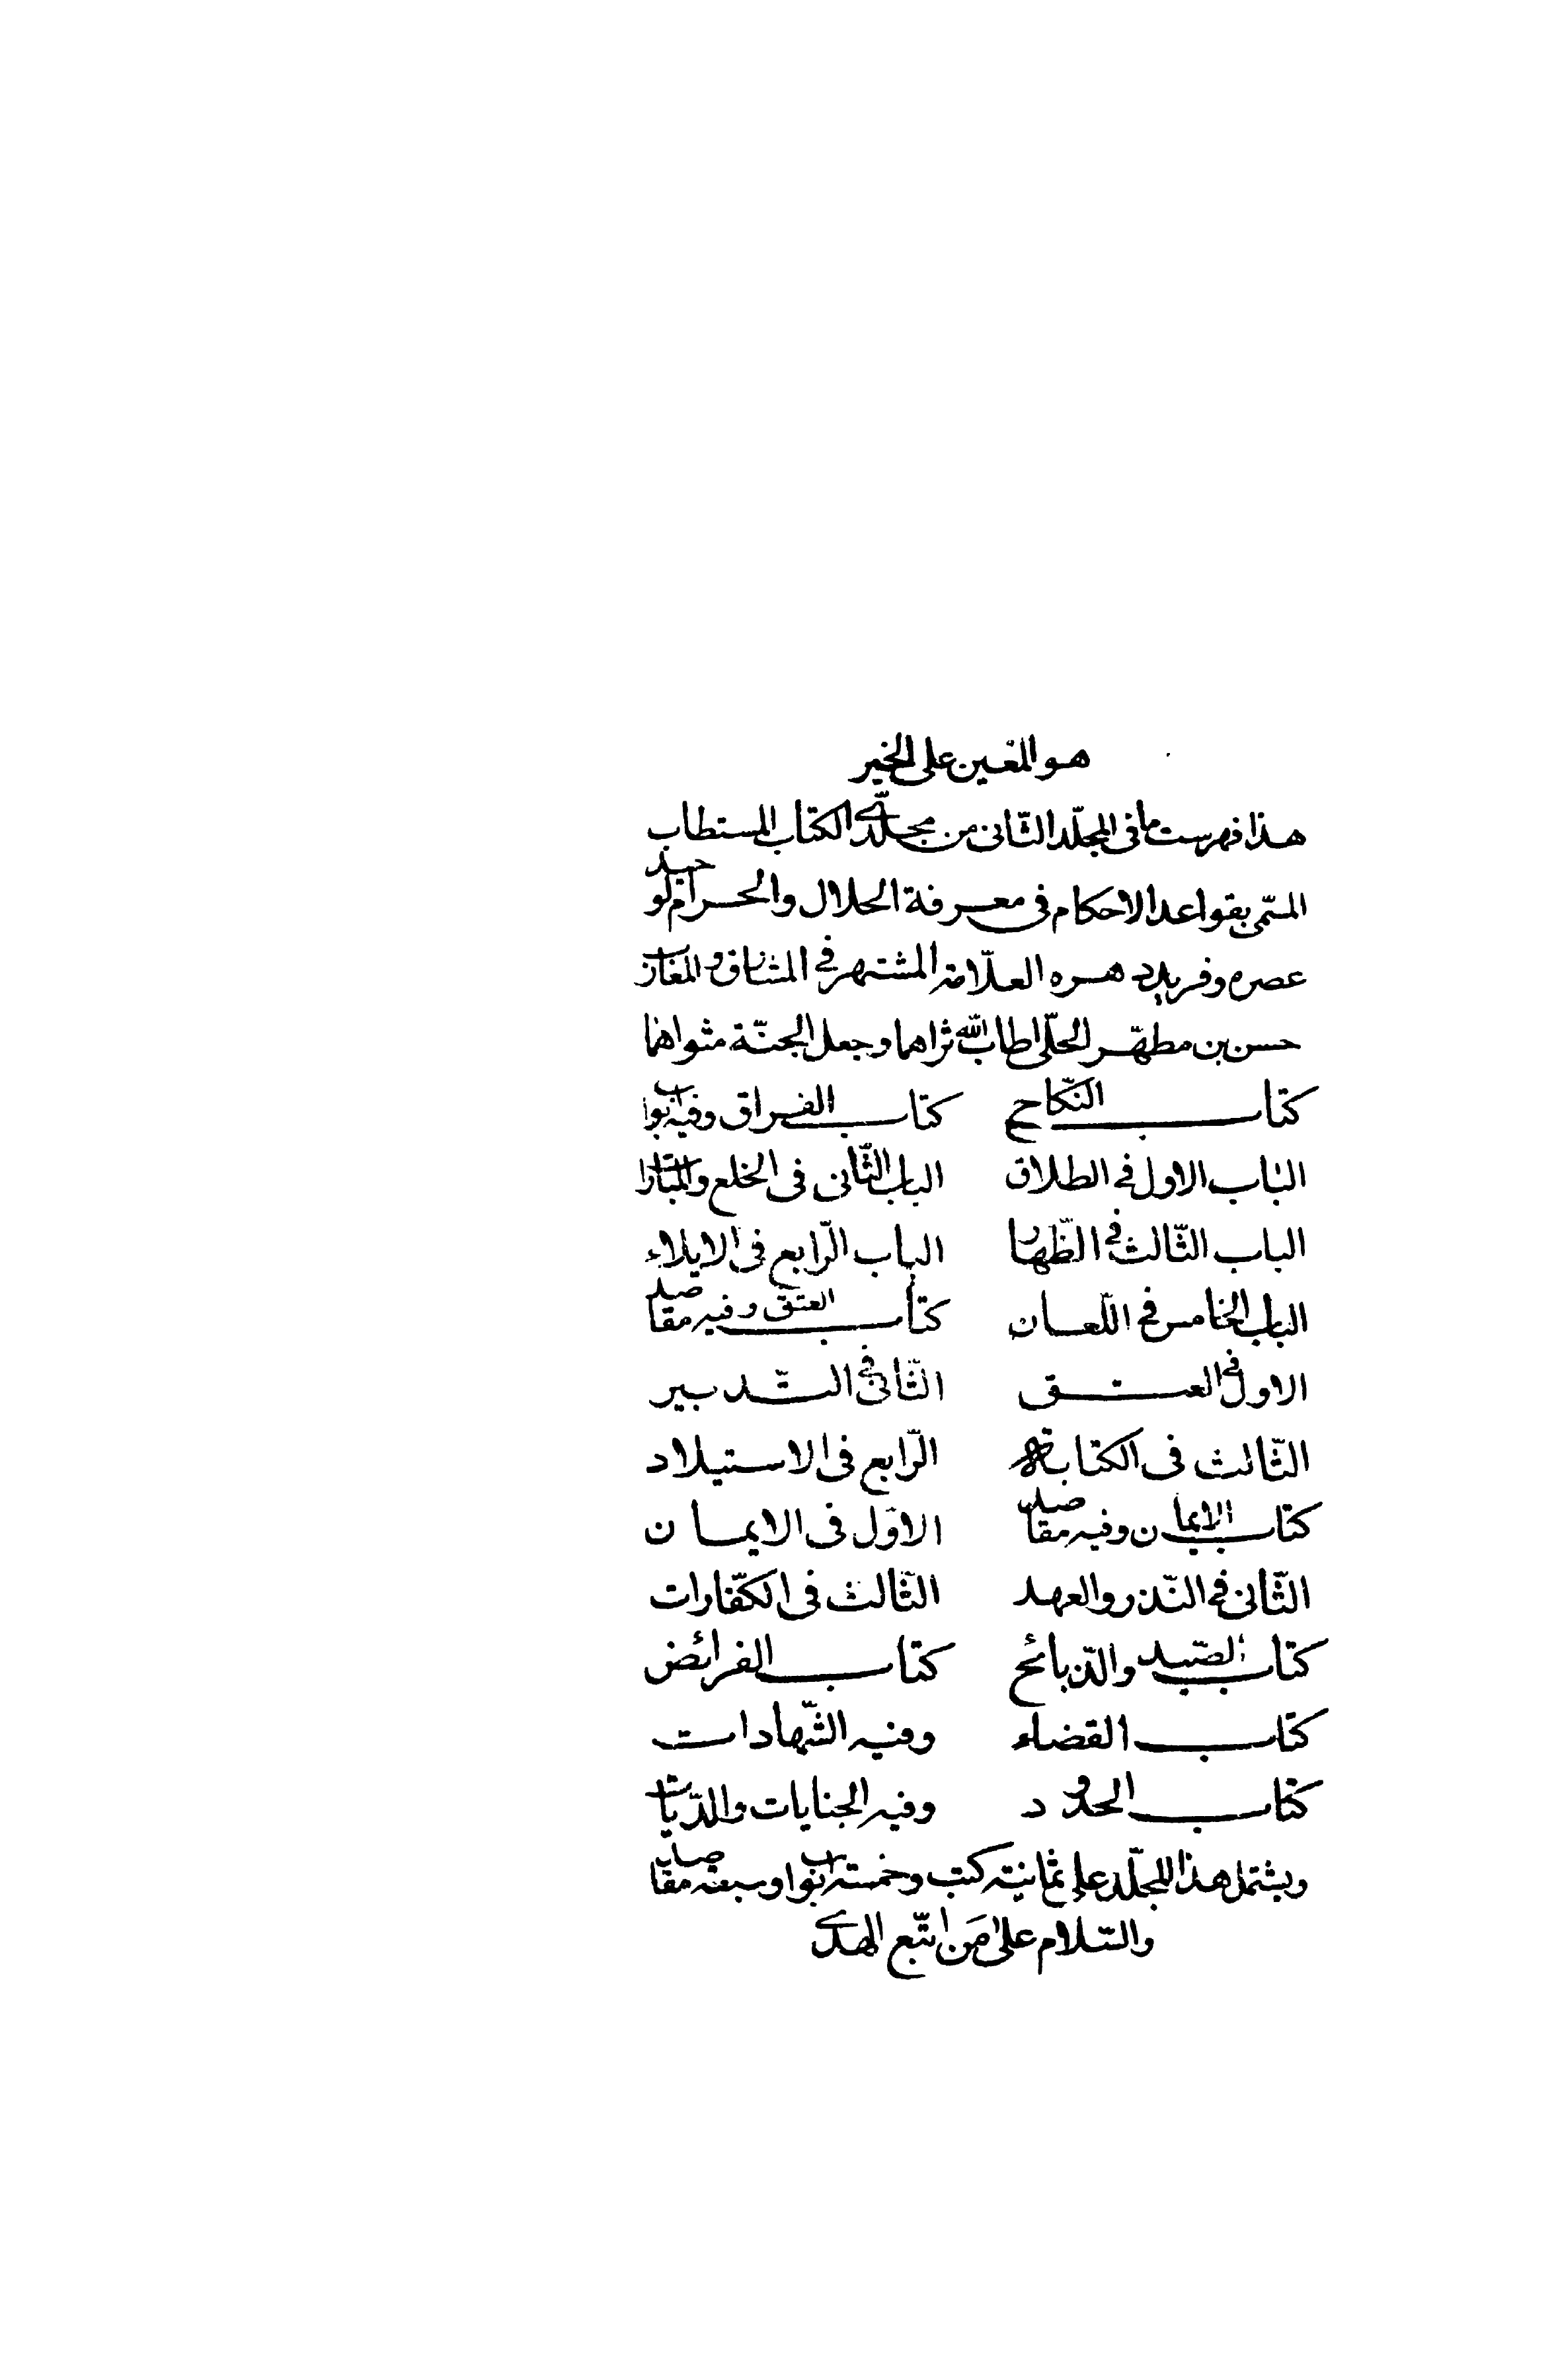 هو المعين على الخير
هذا فهرست ما فى المجلّد الثّانى من مجلّدى الكتاب المستطاب
المسمّى بقواعد الاحكام فى معرفة الحلال والحرام لوحيد
عصره وفريد دهره العلّامة المشتهر فى المشارق والمغارب
حسن بن مطهّر الحلّى اطاب اللّه ثراهما وجعل الجنّة مثواهما
كتاب النّكاح كتاب الفراق وفيه ابواب
الباب الاول فى الطلاق الباب الثّانى فى الخلع والمبارا
الباب الثّالث فى الظّهار الباب الرّابع فى الايلاء
الباب الخامس فى اللّعان كتاب العتق وفيه مقاصد
الاول فى العتق الثّانى فى التّدبير
الثّالث فى الكتابة الرّابع فى الاستيلاد
كتاب الايمان وفيه مقاصد الاوّل فى الايمان
الثّانى فى النّذر والعهد الثّالث فى الكفّارات
كتاب الصّيد والذّبائح كتاب الفرائض
كتاب القضاء وفيه الشّهادات
كتاب الحدود وفيه الجنايات والدّيات
ويشتمل هذا المجلّد على ثمانية كتب وخمسة ابواب وسبعة مقاصد
والسّلام على مَن اتّبع الهدى